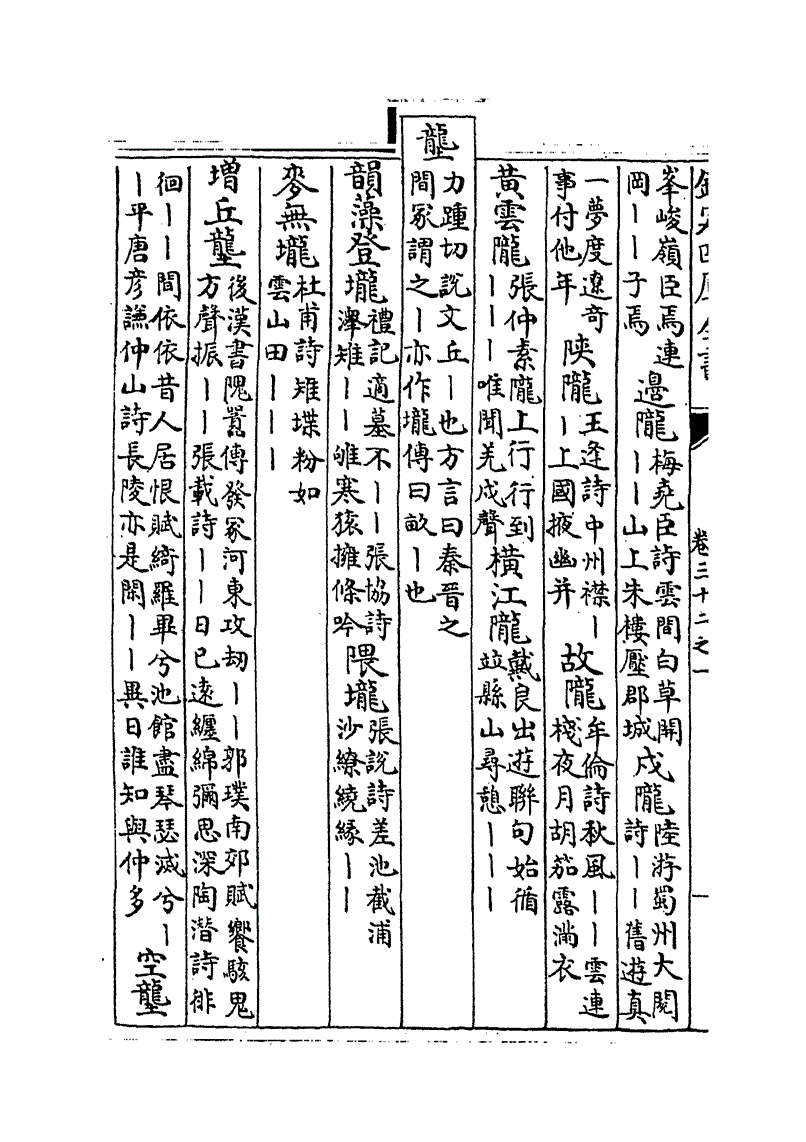 欽定四庫全書 卷三十二之一 一
峯峻嶺臣焉連岡丨丨子焉 邊隴 梅堯臣詩雲間白草開丨丨山上朱樓壓郡城 戍隴 陸游蜀州大閱詩丨丨舊遊真
一夢度遼奇事付他年 陜隴 王逢詩中州襟丨丨上國掖幽并 故隴 年倫詩秋風丨丨雲連棧夜月胡笳露滿衣
黃雲隴 張仲素隴上行行到丨丨丨唯聞羌戍聲 橫江隴 戴良出遊聯句始循竝縣山尋憩丨丨丨
壟 力踵切說文丘丨也方言曰秦晉之間冢謂之丨亦作壠傳曰畝丨也
韻藻登壠 禮記適墓不丨丨張協詩澤雉丨丨雊寒猿擁條吟 隈壠 張說詩差池截浦沙繚繞緣丨丨
麥無壠 杜甫詩雉堞粉如雲山田丨丨丨
增丘壟 後漢書隗囂傳發冢河東攻刼丨丨郭璞南郊賦饗駭鬼方聲振丨丨張載詩丨丨日已遠纏綿彌思深陶潛詩徘
徊丨丨間依依昔人居恨賦綺羅畢兮池館盡琴瑟滅兮丨丨平唐彥謙仲山詩長陵亦是閑丨丨異日誰知與仲多 空壟